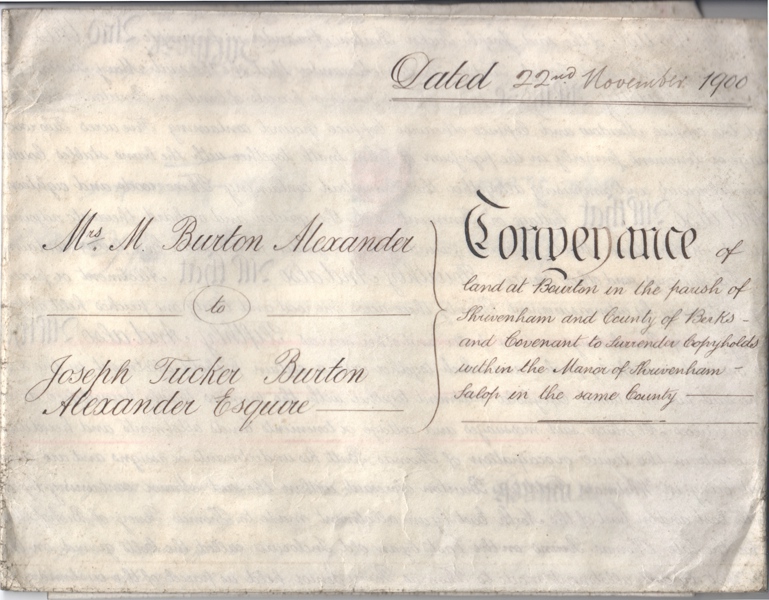 Dated 22nd November 1900
Mrs. M. Burton Alexander
to
Joseph Tucker Burton
Alexander Esquire
Conveyance of
land at Bourton in the parish of
Shrivenham and County of Berks -
and Covenant to Surrender Copyholds
within the Manor of Shrivenham -
Salop in the same County